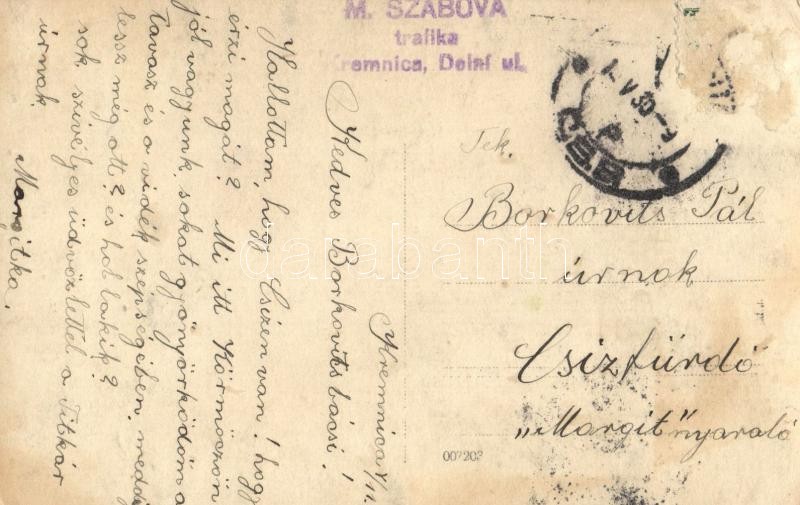 M. SZABOVA
trafika
Kremnica, Dolní ul.
Kremnica V/11.
Kedves Borkovits bácsi!
Hallottam, hogy Csízen van! hogy
érzi magát? Mi itt Körmöczön
jól vagyunk, sokat gyönyörködöm a
tavasz és a vidék szépségeiben. meddig
lessz még ott? és hol lakik?
sok szivélyes üdvözlettel a Titkár
úrnak
Margitka.
Tek.
Borkovits Pál
úrnak
Csizfürdő
"Margit" nyaraló
007203
darabanth